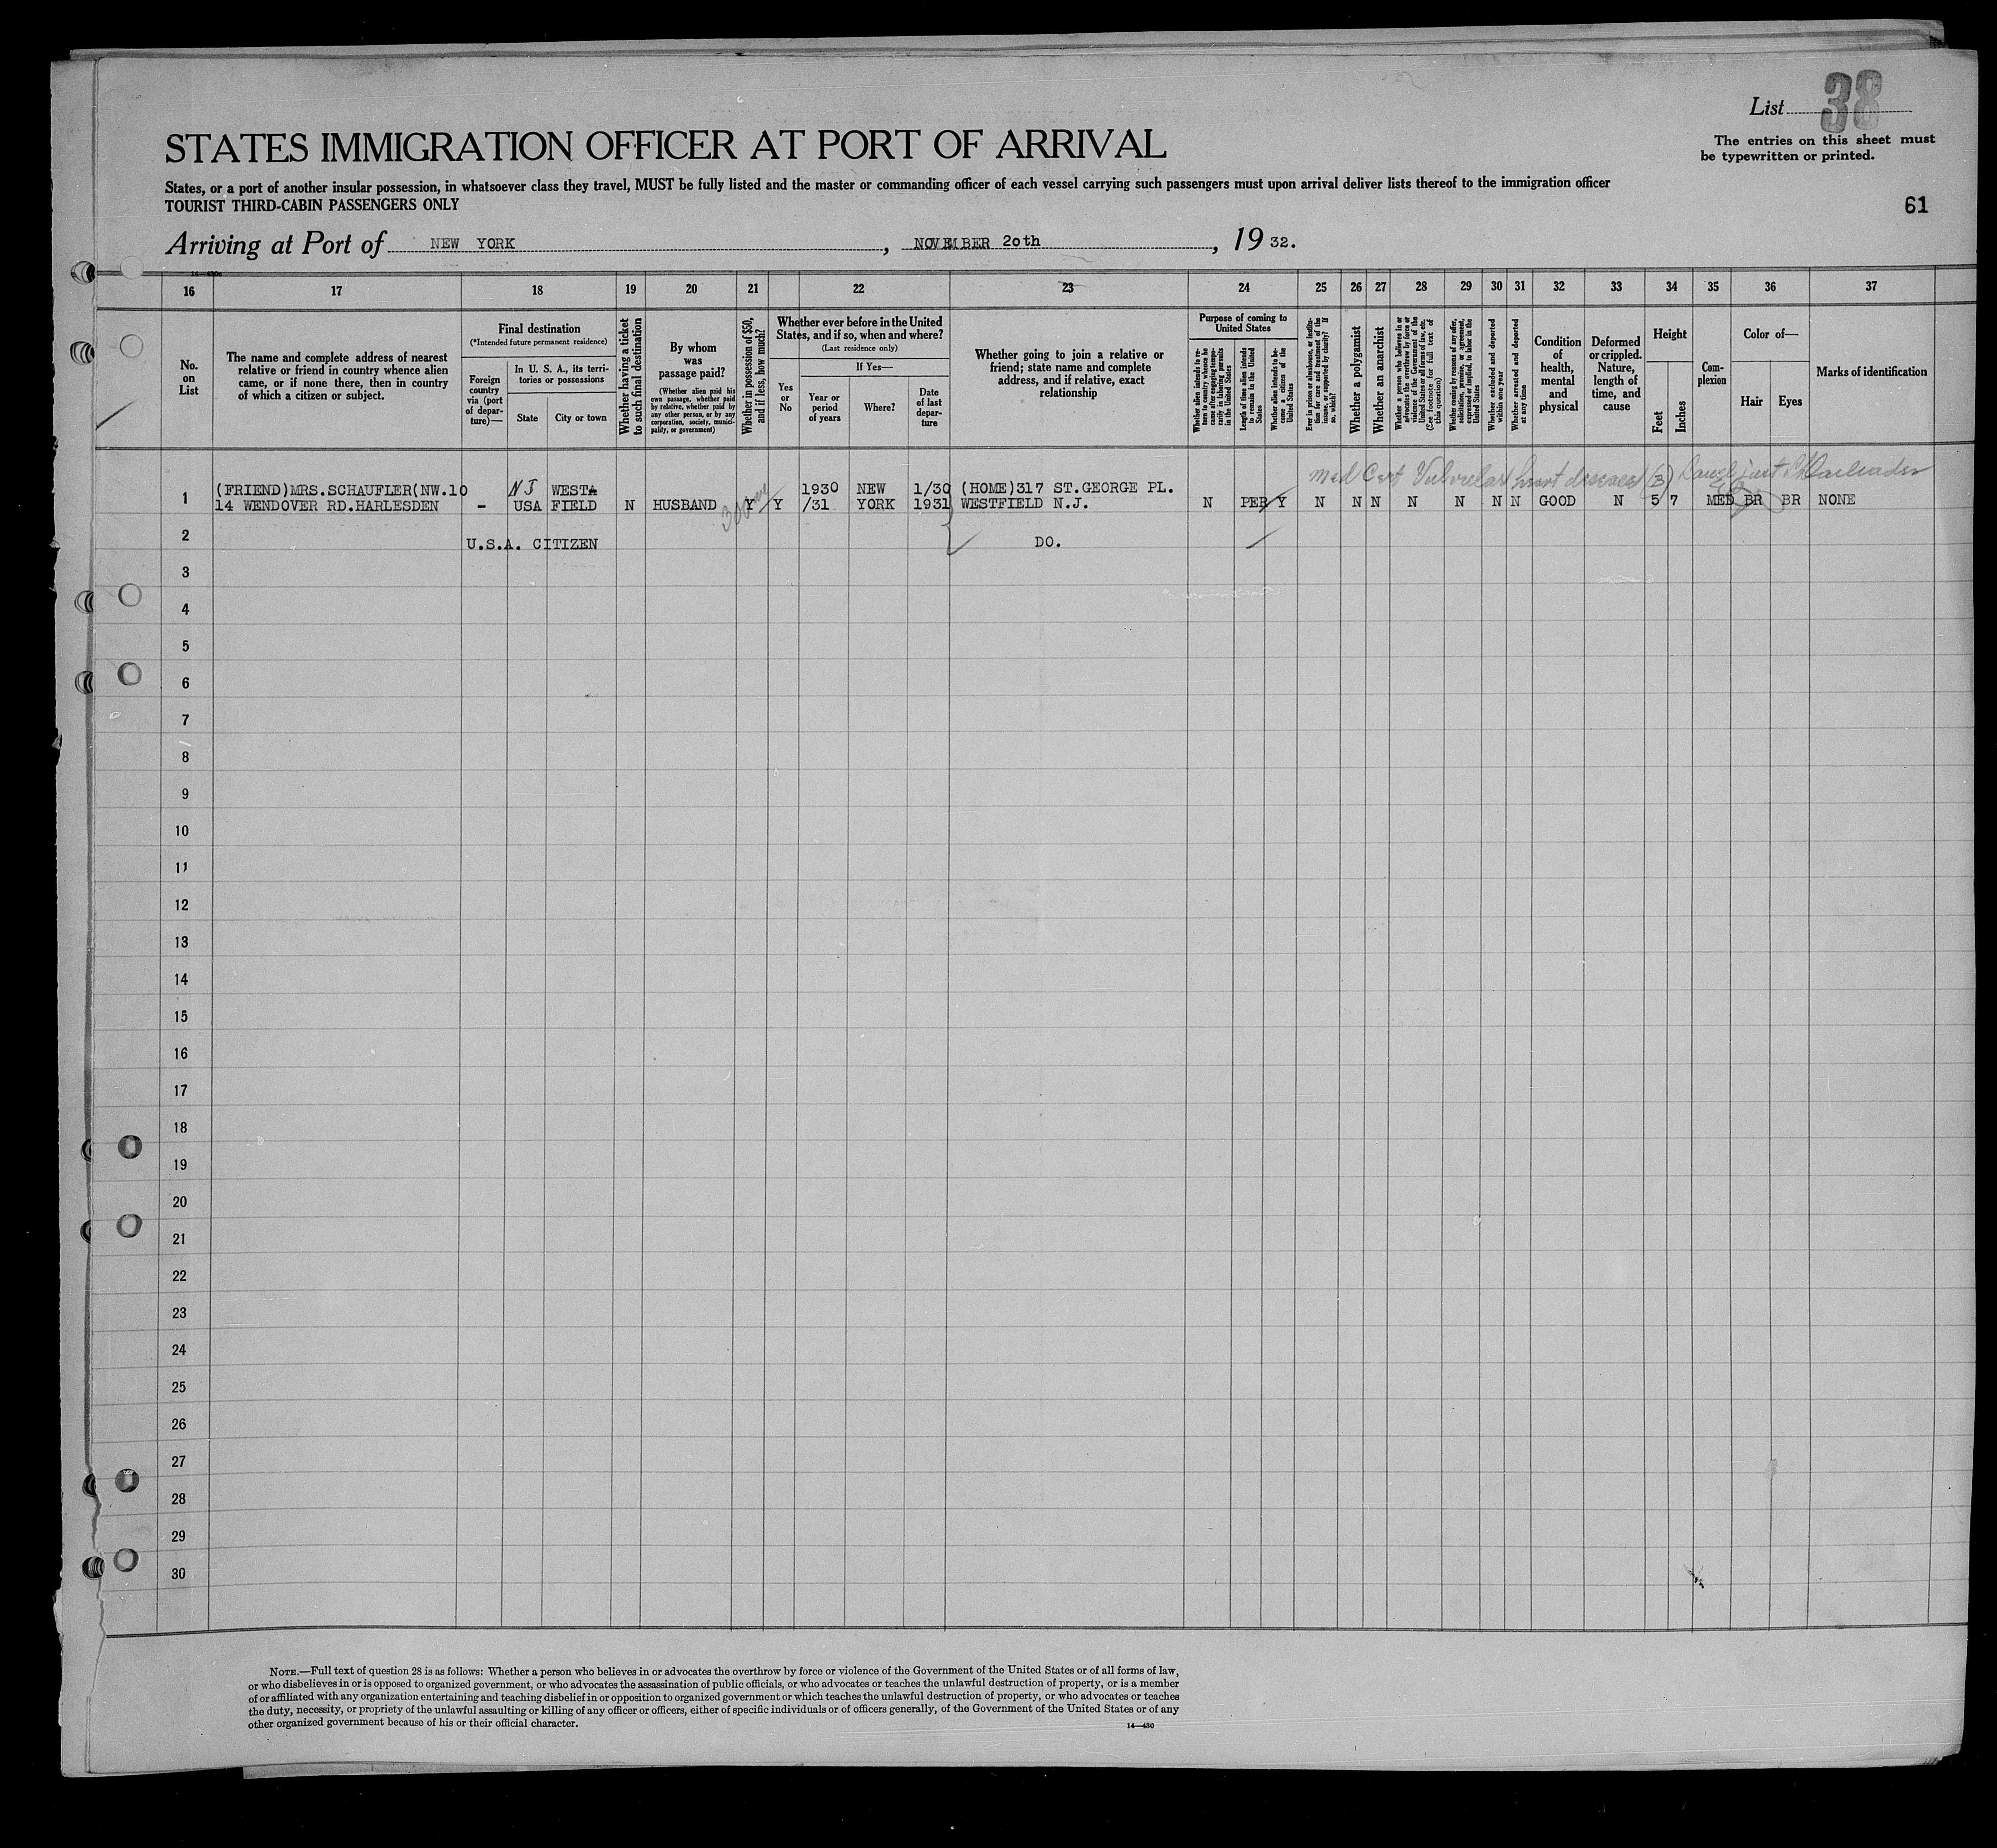 List 38
The entries on this sheet must
be typewritten or printed.
STATES IMMIGRATION OFFICER AT PORT OF ARRIVAL
States, or a port of another insular possession, in whatsoever class they travel, MUST be fully listed and the master or commanding officer of each vessel carrying such passengers must upon arrival deliver lists thereof to the immigration officer
TOURIST THIRD-CABIN PASSENGERS ONLY
61
Arriving at Port of NEW YORK, NOVEMBER 20th, 19 32.
16 17 18 19 20 21 22 23 24 25 26 27 28 29 30 31 32 33 34 35 36 37
No.
on
List
The name and complete address of nearest
relative or friend in country whence alien
came, or if none there, then in country
of which a citizen or subject.
Final destination
(*Intended future permanent residence)
Foreign
country
via (port
of depar-
ture)—
In U. S. A., its terri-
tories or possessions
State
City or town
Whether having a ticket
to such final destination
By whom
was
passage paid?
(Whether alien paid his
own passage, whether paid
by relative, whether paid by
any other person, or by any
corporation, society, munici-
pality, or government)
Whether in possession of $50,
and if less, how much?
Whether ever before in the United
States, and if so, when and where?
(Last residence only)
Yes
or
No
If Yes—
Year or
period
of years
Where?
Date
of last
depar-
ture
Whether going to join a relative or
friend; state name and complete
address, and if relative, exact
relationship
Purpose of coming to
United States
Whether alien intends to re-
turn to country whence he
came after engaging tempo-
rarily in laboring pursuits
in the United States
Length of time alien intends
to remain in the United
States
Whether alien intends to be-
come a citizen of the
United States
Ever in prison or almshouse, or institu-
tion for care and treatment of the
insane, or supported by charity? If
so, which?
Whether a polygamist
Whether an anarchist
Whether a person who believes in or
advocates the overthrow by force or
violence of the Government of the
United States or all forms of law, etc.
(See footnote for full text of
this question)
Whether coming by reasons of any offer,
solicitation, promise, or agreement,
expressed or implied, to labor in the
United States
Whether excluded and deported
within one year
Whether arrested and deported
at any time
Condition
of
health,
mental
and
physical
Deformed
or crippled.
Nature,
length of
time, and
cause
Height
Feet
Inches
Com-
plexion
Color of—
Hair Eyes
Marks of identification
Med Cert Valvular heart disease (3)
1 (FRIEND)MRS.SCHAUFLER(NW.10 NJ WEST 1930 NEW 1/30 (HOME)317 ST.GEORGE PL.
14 WENDOVER RD.HARLESDEN - USA FIELD N HUSBAND Y Y /31 YORK 1931 WESTFIELD N.J. N PER Y N N N N N N N GOOD N 5 7 MED BR BR NONE
2 U.S.A. CITIZEN DO.
3
4
5
6
7
8
9
10
11
12
13
14
15
16
17
18
19
20
21
22
23
24
25
26
27
28
29
30
NOTE.—Full text of question 28 is as follows: Whether a person who believes in or advocates the overthrow by force or violence of the Government of the United States or of all forms of law,
or who disbelieves in or is opposed to organized government, or who advocates the assassination of public officials, or who advocates or teaches the unlawful destruction of property, or is a member
of or affiliated with any organization entertaining and teaching disbelief in or opposition to organized government or which teaches the unlawful destruction of property, or who advocates or teaches
the duty, necessity, or propriety of the unlawful assaulting or killing of any officer or officers, either of specific individuals or of officers generally, of the Government of the United States or of any
other organized government because of his or their official character.
14—430